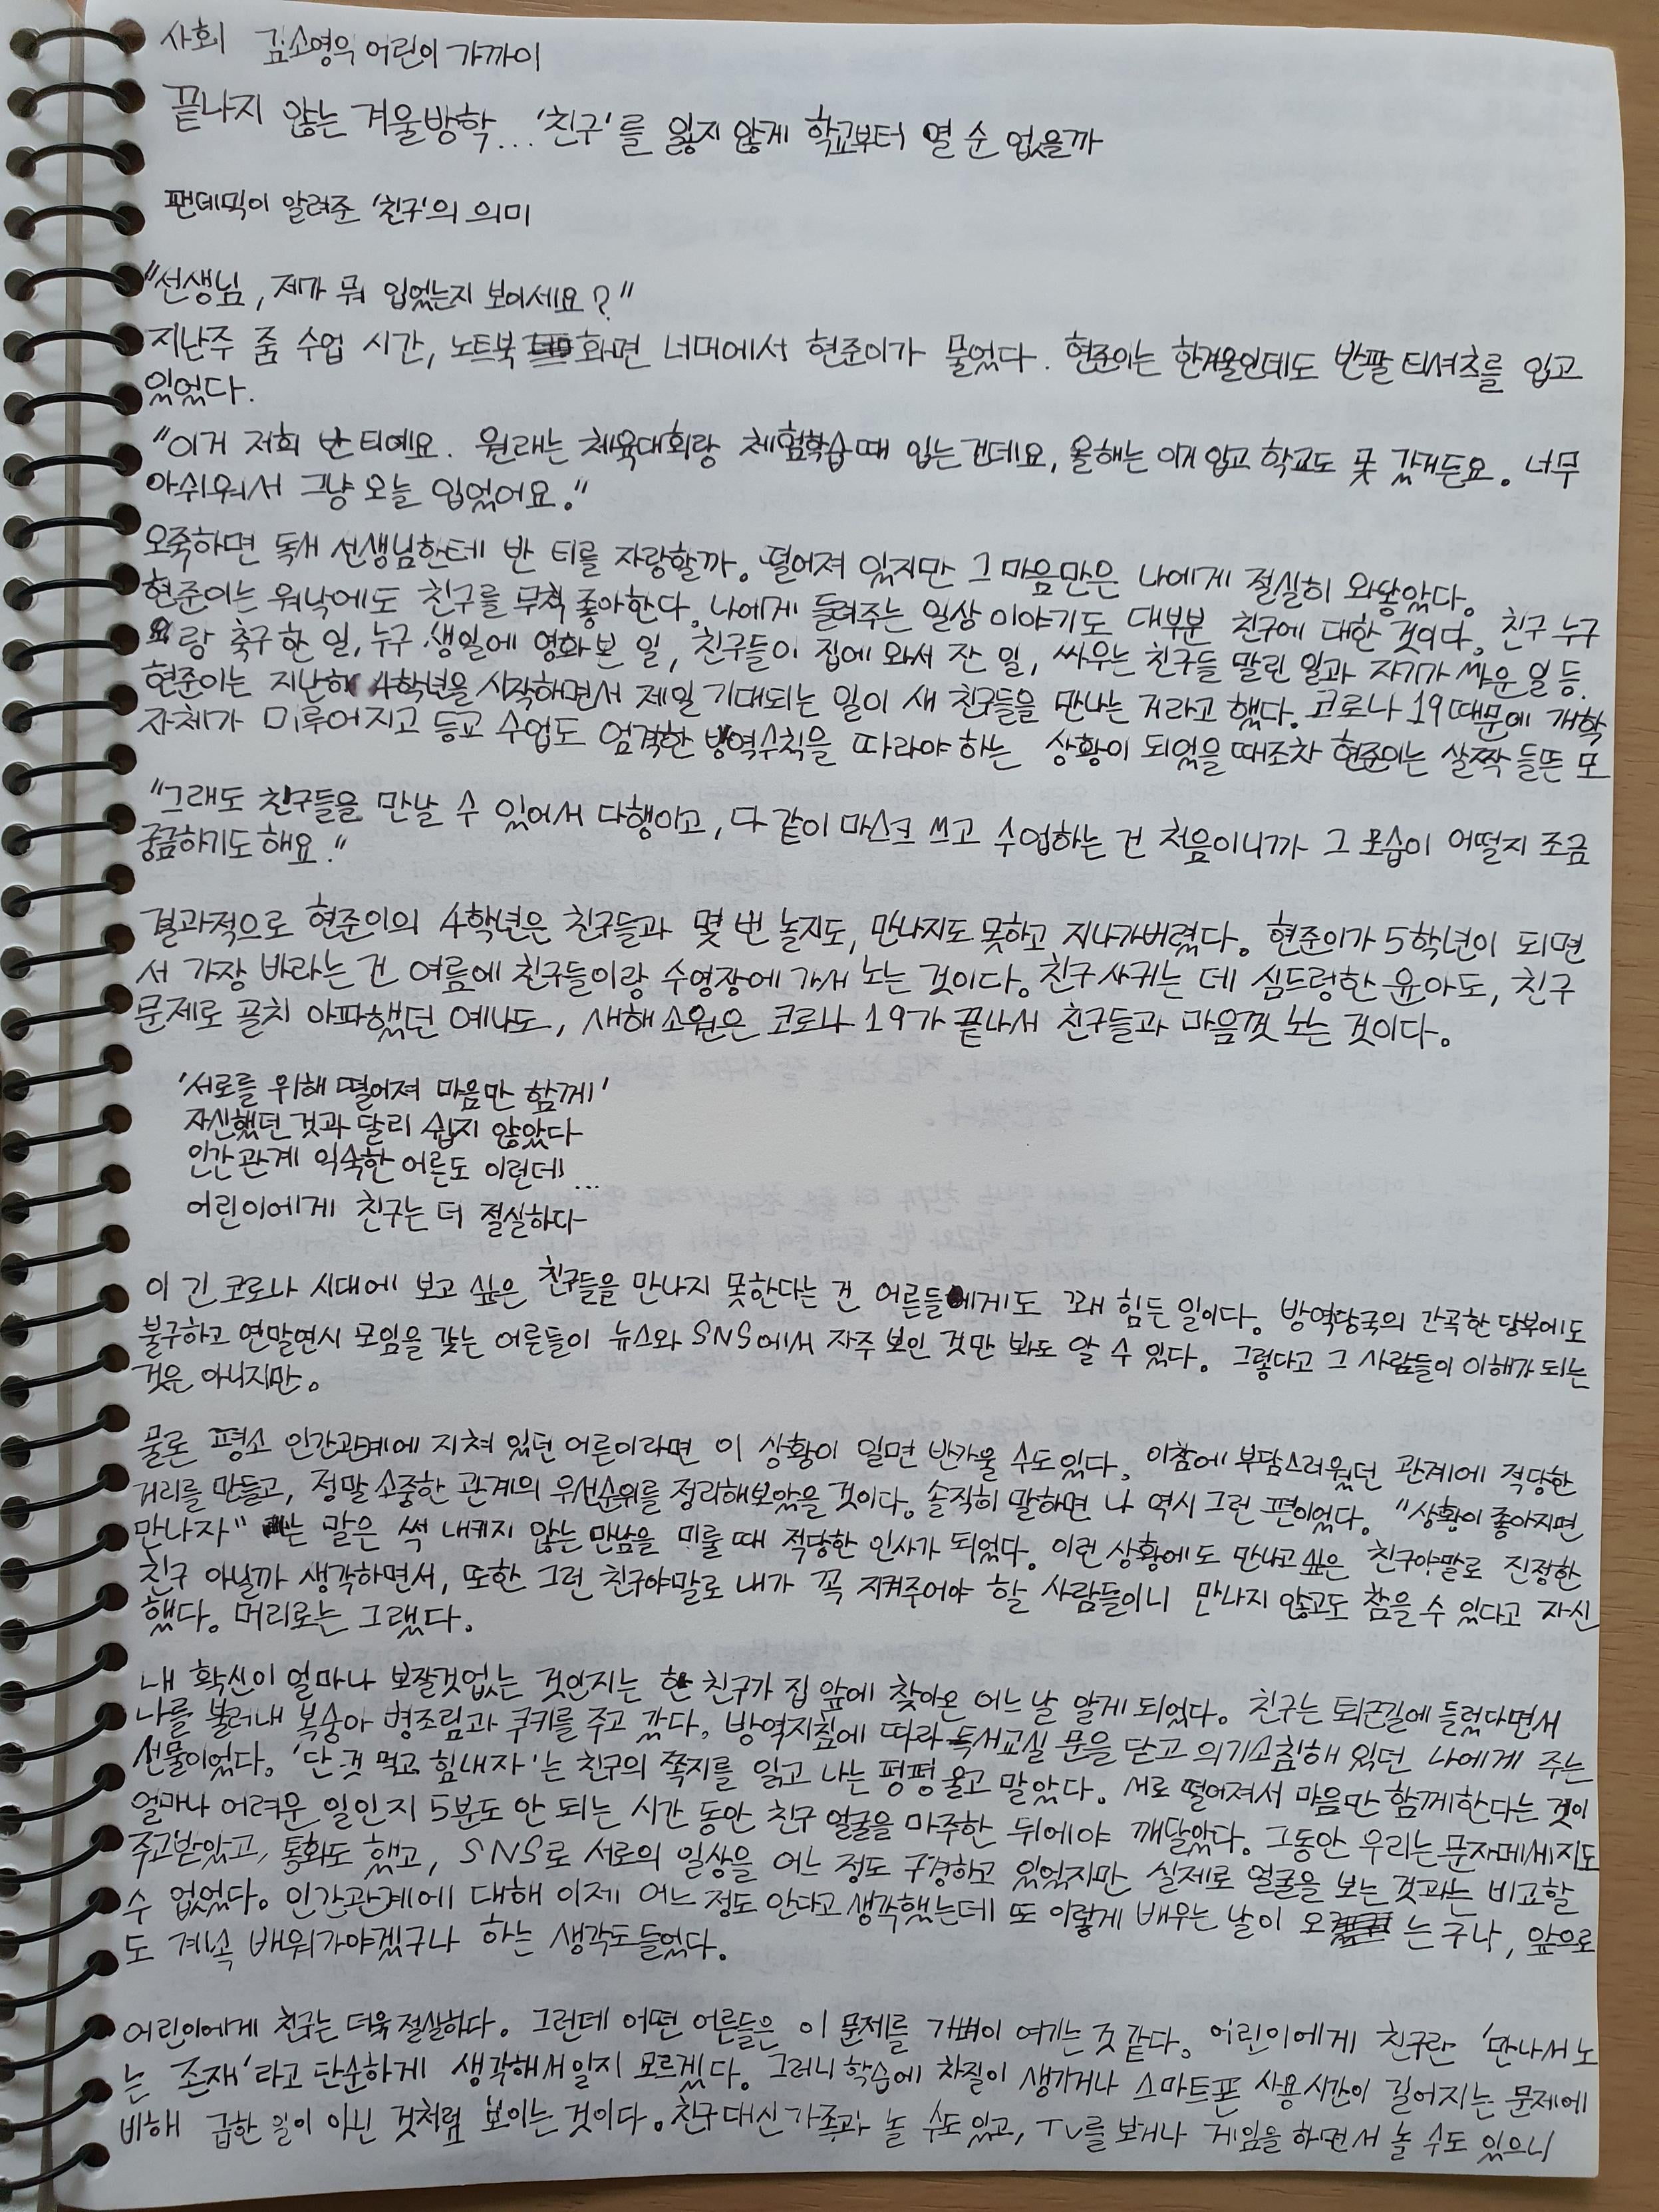 사회 김소영의 어린이 가까이
끝나지 않는 겨울방학...'친구'를 잃지 않게 학교부터 열 순 없을까
팬데믹이 알려준 '친구'의 의미
"선생님, 제가 뭐 입었는지 보이세요?"
지난주 줌 수업 시간, 노트북 화면 너머에서 현준이가 물었다. 현준이는 한겨울인데도 반팔 티셔츠를 입고
있었다.
"이거 저희 반 티예요. 원래는 체육대회랑 체험학습 때 입는 건데요, 올해는 이거 입고 학교도 못 갔거든요. 너무
아쉬워서 그냥 오늘 입었어요."
오죽하면 독서 선생님한테 반 티를 자랑할까. 떨어져 있지만 그 마음만은 나에게 절실히 와닿았다.
현준이는 워낙에도 친구를 무척 좋아한다. 나에게 들려주는 일상 이야기도 대부분 친구에 대한 것이다. 친구 누구
랑 축구 한 일, 누구 생일에 영화 본 일, 친구들이 집에 와서 잔 일, 싸우는 친구들 말린 일과 자기가 싸운 일 등.
현준이는 지난해 4학년을 시작하면서 제일 기대되는 일이 새 친구들을 만나는 거라고 했다. 코로나 19 때문에 개학
자체가 미루어지고 등교 수업도 엄격한 방역수칙을 따라야 하는 상황이 되었을 때조차 현준이는 살짝 들뜬 모
"그래도 친구들을 만날 수 있어서 다행이고, 다 같이 마스크 쓰고 수업하는 건 처음이니까 그 모습이 어떨지 조금
궁금하기도 해요."
결과적으로 현준이의 4학년은 친구들과 몇 번 놀지도, 만나지도 못하고 지나가버렸다. 현준이가 5학년이 되면
서 가장 바라는 건 여름에 친구들이랑 수영장에 가서 노는 것이다. 친구 사귀는 데 심드렁한 윤아도, 친구
문제로 골치 아파했던 예나도, 새해 소원은 코로나 19가 끝나서 친구들과 마음껏 노는 것이다.
'서로를 위해 떨어져 마음만 함께'
자신했던 것과 달리 쉽지 않았다
인간관계 익숙한 어른도 이런데...
어린이에게 친구는 더 절실하다
이 긴 코로나 시대에 보고 싶은 친구들을 만나지 못한다는 건 어른들에게도 꽤 힘든 일이다. 방역당국의 간곡한 당부에도
불구하고 연말연시 모임을 갖는 어른들이 뉴스와 SNS에서 자주 보인 것만 봐도 알 수 있다. 그렇다고 그 사람들이 이해가 되는
것은 아니지만.
물론 평소 인간관계에 지쳐 있던 어른이라면 이 상황이 일면 반가울 수도 있다. 이참에 부담스러웠던 관계에 적당한
거리를 만들고, 정말 소중한 관계의 우선순위를 정리해보았을 것이다. 솔직히 말하면 나 역시 그런 편이었다. "상황이 좋아지면
만나자"는 말은 썩 내키지 않는 만남을 미룰 때 적당한 인사가 되었다. 이런 상황에도 만나고 싶은 친구야말로 진정한
친구 아닐까 생각하면서, 또한 그런 친구야말로 내가 꼭 지켜주어야 할 사람들이니 만나지 않고도 참을 수 있다고 자신
했다. 머리로는 그랬다.
내 확신이 얼마나 보잘것없는 것인지는 한 친구가 집 앞에 찾아온 어느 날 알게 되었다. 친구는 퇴근길에 들렀다면서
나를 불러내 복숭아 병조림과 쿠키를 주고 갔다. 방역지침에 따라 독서교실 문을 닫고 의기소침해 있던 나에게 주는
선물이었다. '단 것 먹고 힘내자'는 친구의 쪽지를 읽고 나는 펑펑 울고 말았다. 서로 떨어져서 마음만 함께한다는 것이
얼마나 어려운 일인지 5분도 안 되는 시간 동안 친구 얼굴을 마주한 뒤에야 깨달았다. 그동안 우리는 문자메세지도
주고받았고, 통화도 했고, SNS로 서로의 일상을 어느 정도 구경하고 있었지만 실제로 얼굴을 보는 것과는 비교할
수 없었다. 인간관계에 대해 이제 어느 정도 안다고 생각했는데 또 이렇게 배우는 날이 오는구나, 앞으로
도 계속 배워가야겠구나 하는 생각도 들었다.
어린이에게 친구는 더욱 절실하다. 그런데 어떤 어른들은 이 문제를 가벼이 여기는 것 같다. 어린이에게 친구란 '만나서 노
는 존재'라고 단순하게 생각해서일지 모르겠다. 그러니 학습에 차질이 생기거나 스마트폰 사용시간이 길어지는 문제에
비해 급한 일이 아닌 것처럼 보이는 것이다. 친구 대신 가족과 놀 수도 있고, TV를 보거나 게임을 하면서 놀 수도 있으니